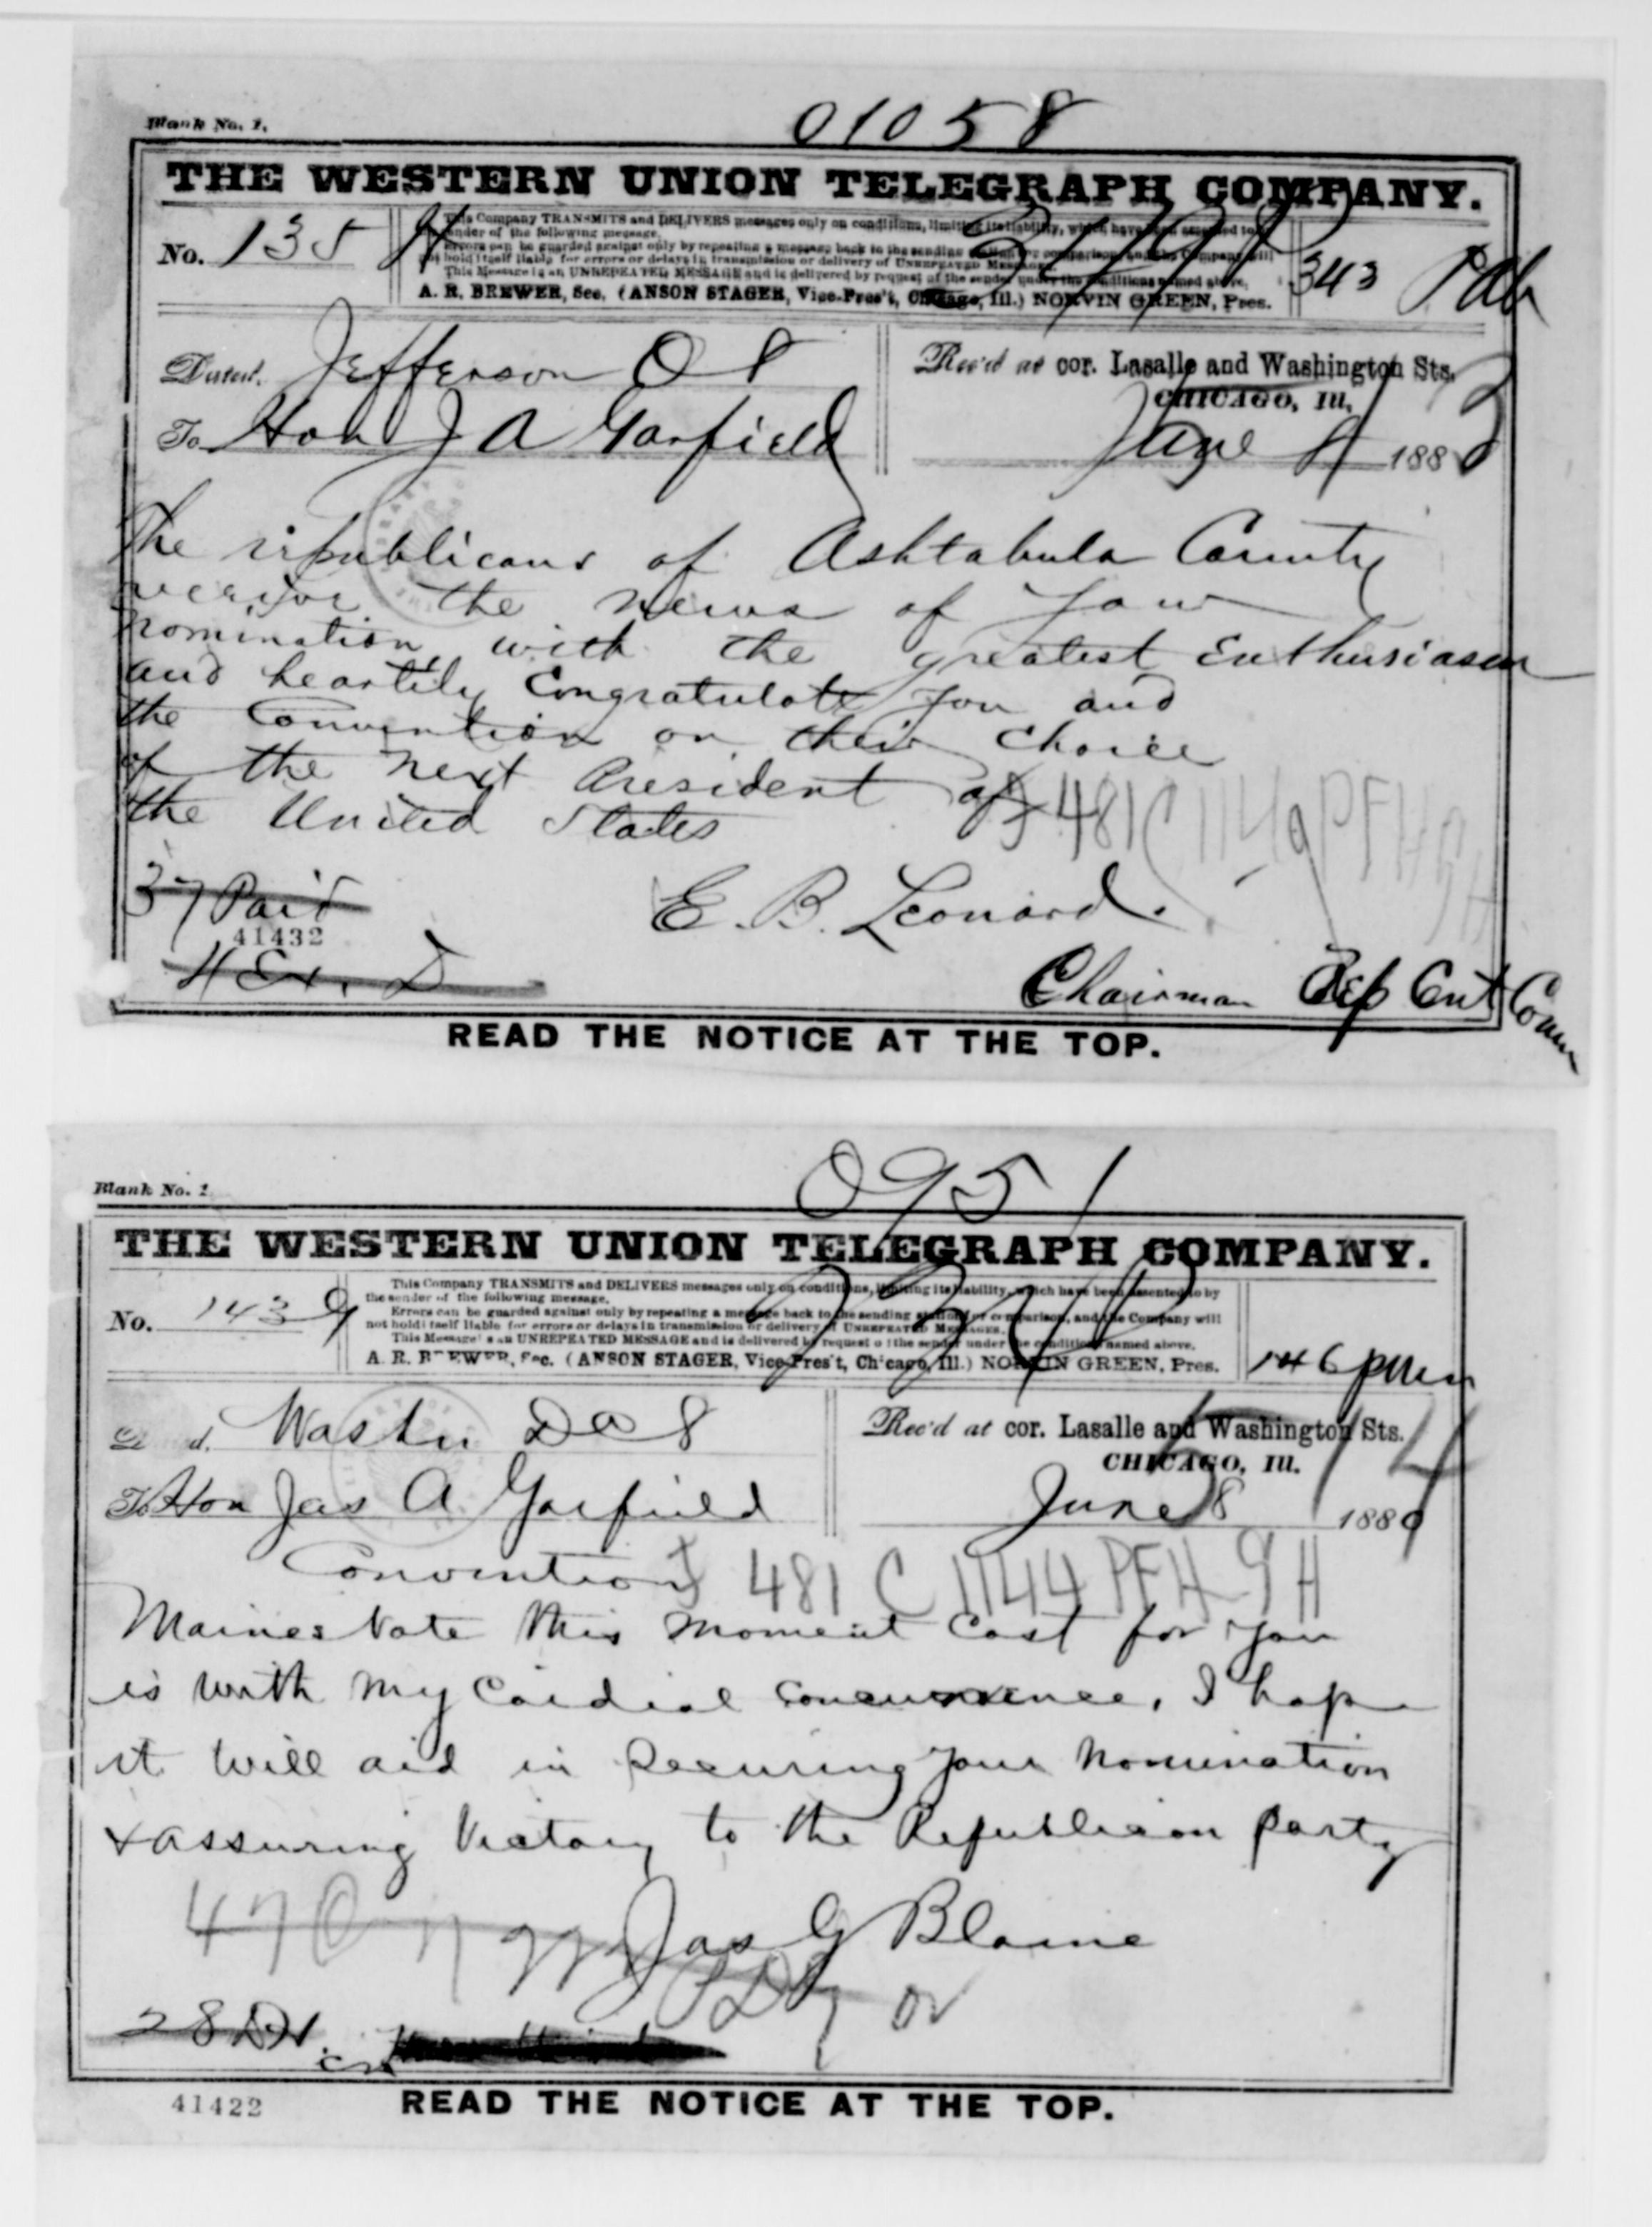 01058
Blank No. 1.
THE WESTERN UNION TELEGRAPH COMPANY.
This Company TRANSMITS and DELIVERS messages only on conditions, limiting its liability, which have been assented to by
sender of the following message.
No. 135
Errors can be guarded against only by repeating a message back to the sending station for comparison, and the Company will
not hold itself liable for errors or delays in transmission or delivery of UNREPEATED MESSAGES.
343
This Message is an UNREPEATED MESSAGE and is delivered by request of the sender under the conditions named above.
A. R. BREWER, Sec. (ANSON STAGER, Vice-Pres't, Chicago, Ill.) NORVIN GREEN, Pres.
Dated. Jefferson O 8
Rec'd at cor. Lasalle and Washington Sts.
CHICAGO, Ill.
To Hon J A Garfield
June 8 1880
The republicans of Ashtabula County
receive the news of your
nomination with the greatest Enthusiasm
and heartily Congratulate you and
the Convention on their choice
of the next President of
the United States
481 C 1149 PFH 9H
37 Paid
E. B. Leonard.
41432
4 Ex. D
Chairman Rep Cent Com
READ THE NOTICE AT THE TOP.
0951
Blank No. 1
THE WESTERN UNION TELEGRAPH COMPANY.
This Company TRANSMITS and DELIVERS messages only on conditions, limiting its liability, which have been assented to by
the sender of the following message.
No. 143
Errors can be guarded against only by repeating a message back to the sending station for comparison, and the Company will
not hold itself liable for errors or delays in transmission or delivery of UNREPEATED MESSAGES.
This Message is an UNREPEATED MESSAGE and is delivered by request of the sender under the conditions named above.
A. R. BREWER, Sec. (ANSON STAGER, Vice-Pres't, Chicago, Ill.) NORVIN GREEN, Pres.
146 pm
Dated. Washn DC 8
Rec'd at cor. Lasalle and Washington Sts.
CHICAGO, Ill.
To Hon Jas A Garfield
June 8 1880
Convention
481 C 1144 PFH 9H
Maines Vote this moment Cast for you
is with my Cordial Concurrence, I hope
it will aid in Securing your nomination
& assuring Victory to the Republican party
Jas G Blaine
28 DH
41422
READ THE NOTICE AT THE TOP.